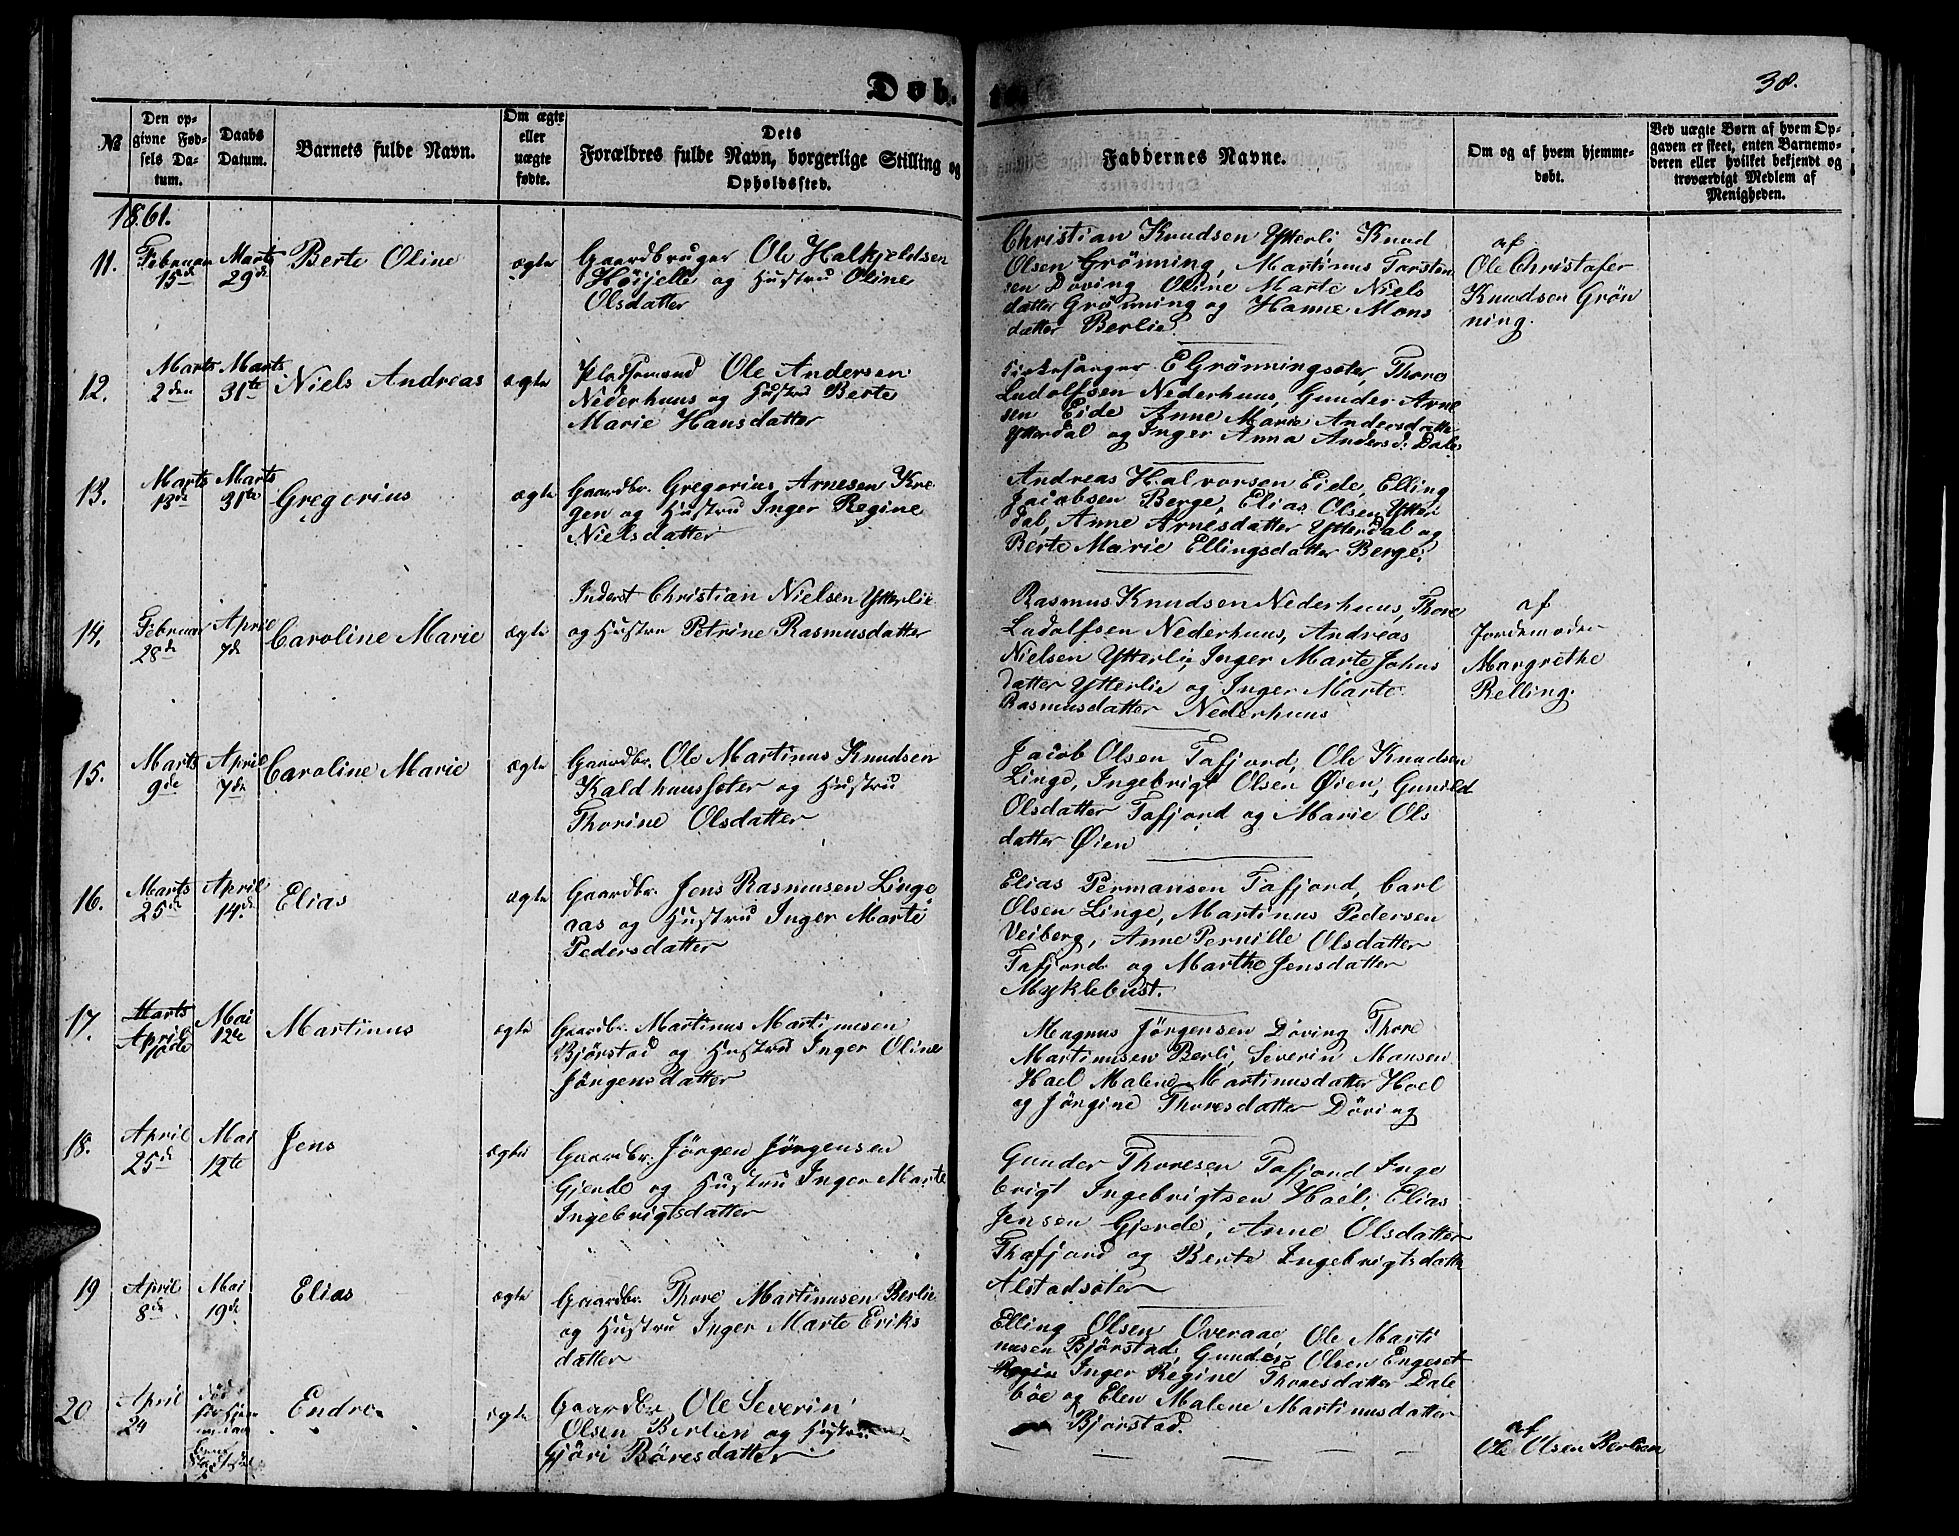 Døb
38.
№
Den op-
givne Fød-
sels Da-
tum.
Daabs
Datum.
Barnets fulde Navn.
Om ægte
eller
uægte
fødte.
Dets
Forældres fulde Navn, borgerlige Stilling og
Opholdssted.
Faddernes Navne.
Om og af hvem hjemme-
døbt.
Ved uægte Børn af hvem Op-
gaven er skeet, enten Barnemo-
deren eller hvilket bekjendt og
troværdigt Medlem af
Menigheden.
1861.
11.
Februar
15de
Marts
29de
Berte Oline
ægte
Gaardbruger Ole Halkjeldsen
Høijelle og Hustru Oline
Olsdatter
Christian Knudsen Ytterli Knud
Olsen Grönning, Martinus Torsten
sen Döving Oline Marte Niels
datter Grönning og Hanne Mons
datter Berlie.
af
Ole Christofer
Knudsen Grön
ning.
12.
Marts
2den
Marts
31te
Niels Andreas
ægte
Pladsemand Ole Andersen
Nederhuus og Hustru Berte
Marie Hansdatter
Kirkesanger E Grönningsæter, Thore
Ludolfsen Nederhuus, Gunder Arne
sen Eide Anne Marie Andersdatter
Ytterdal og Inger Anna Andersd: Dale
13.
Marts
13de
Marts
31te
Gregorius
ægte
Gaardbr. Gregorius Arnesen Kre
gen og Hustru Inger Regine
Nielsdatter
Andreas Halvorsen Eide, Elling
Jacobsen Berge, Elias Olsen Ytter
dal, Anne Arnesdatter Ytterdal og
Berte Marie Ellingsdatter Berge.
14.
Februar
28de
April
7de
Caroline Marie
ægte
Inderst Christian Nielsen Ytterlie
og Hustru Petrine Rasmusdatter
Rasmus Knudsen Nederhuus, Thore
Ludolfsen Nederhuus, Andreas
Nielsen Ytterlie, Inger Marte Johns
datter Ytterlie og Inger Marte
Rasmusdatter Nederhuus
af
Jordemoder
Margrethe
Relling.
15.
Marts
9de
April
7de
Caroline Marie
ægte
Gaardbr. Ole Martinus Knudsen
Kaldhuussæter og Hustru
Thorine Olsdatter
Jacob Olsen Tafjord, Ole Knudsen
Linge, Ingebrigt Olsen Øien, Gunild
Olsdatter Tafjord og Marie Ols
datter Øien
16.
Marts
25de
April
14de
Elias
ægte
Gaardbr. Jens Rasmusen Linge
aas og Hustru Inger Marte
Pedersdatter
Elias Permansen Tafjord, Carl
Olsen Linge, Martinus Pedersen
Veiberg, Anne Pernille Olsdatter
Tafjord og Marthe Jensdatter
Myklebust.
17.
Marts
April
10de
Mai
12te
Martinus
ægte
Gaardbr. Martinus Martinusen
Bjørstad og Hustru Inger Oline
Jörgensdatter
Magnus Jörgensen Döving Thore
Martinusen Berli, Severin Monsen
Hoel Malene Martinusdatter Hoel
og Jörgine Thoresdatter Döving
18.
April
25de
Mai
12te
Jens
ægte
Gaardbr. Jörgen Jörgensen
Gjerde og Hustru Inger Marte
Ingebrigtsdatter
Gunder Thoresen Tafjord Inge
brigt Ingebrigtsen Hoel, Elias
Jensen Gjerde, Anne Olsdatter
Thafjord og Berte Ingebrigtsdatt
Alstadsæter
19
April
8de
Mai
19de
Elias
ægte
Gaardbr. Thore Martinusen Berlie
og Hustru Inger Marte Eriks
datter
Elling Olsen Overaae, Ole Marti
nusen Bjørstad, Gunder Olsen Engeset
Inger Regine Thoresdatter Dale
böe og Elen Malene Martinusdatter
Bjørstad.
20
April
24
Endre
ægte
Gaardbr Ole Severin
Olsen Berlien og Hustru
Gjöri Böresdatter
af
Ole Olsen Berlien